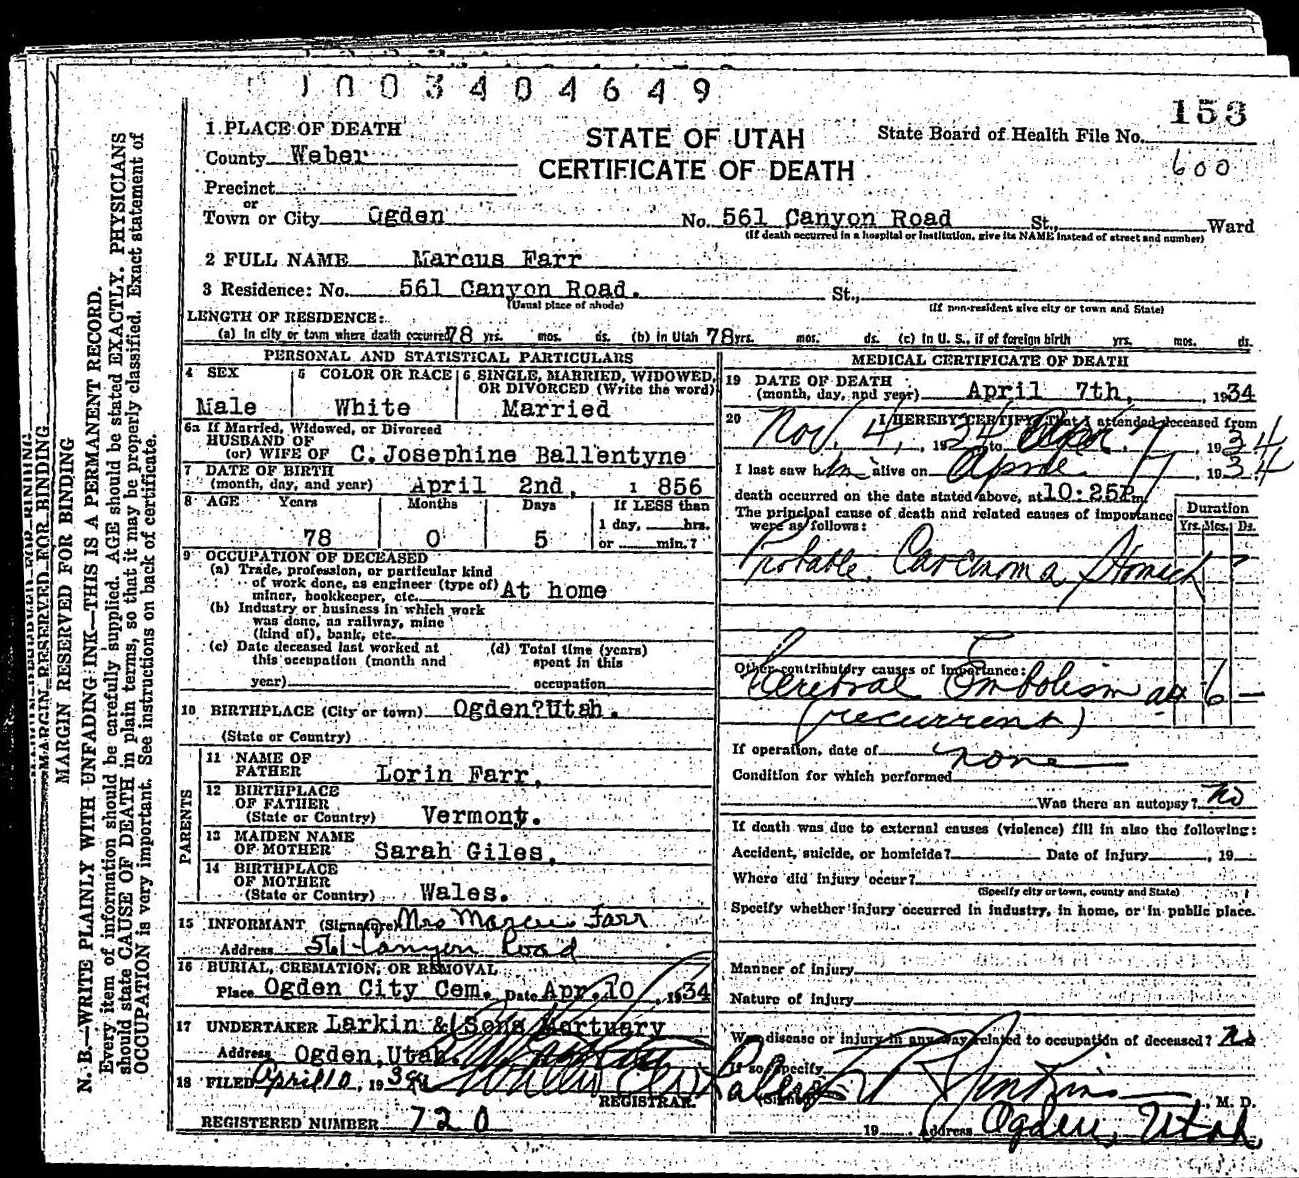 1003404649
153
1 PLACE OF DEATH
STATE OF UTAH
State Board of Health File No.
County Weber
CERTIFICATE OF DEATH
600
Precinct
or
Town or City Ogden No. 561 Canyon Road St., Ward
(If death occurred in a hospital or institution, give its NAME instead of street and number)
2 FULL NAME Marcus Farr
3 Residence: No. 561 Canyon Road. St.,
(Usual place of abode) (If non-resident give city or town and State)
LENGTH OF RESIDENCE:
(a) In city or town where death occurred 78 yrs. mos. ds. (b) in Utah 78 yrs. mos. ds. (c) in U. S., if of foreign birth yrs. mos. ds.
PERSONAL AND STATISTICAL PARTICULARS
4 SEX 5 COLOR OR RACE 6 SINGLE, MARRIED, WIDOWED, OR DIVORCED (Write the word)
Male White Married
6a If Married, Widowed, or Divorced
HUSBAND OF
(or) WIFE OF C. Josephine Ballentyne
7 DATE OF BIRTH
(month, day, and year) April 2nd, 1 856
8 AGE Years Months Days If LESS than
1 day, hrs.
78 0 5 or min.?
9 OCCUPATION OF DECEASED
(a) Trade, profession, or particular kind
of work done, as engineer (type of)
miner, bookkeeper, etc. At home
(b) Industry or business in which work
was done, as railway, mine
(kind of), bank, etc.
(c) Date deceased last worked at
this occupation (month and
year)
(d) Total time (years)
spent in this
occupation
10 BIRTHPLACE (City or town) Ogden?Utah.
(State or Country)
PARENTS
11 NAME OF
FATHER Lorin Farr,
12 BIRTHPLACE
OF FATHER
(State or Country) Vermont.
13 MAIDEN NAME
OF MOTHER Sarah Giles,
14 BIRTHPLACE
OF MOTHER
(State or Country) Wales.
15 INFORMANT (Signature) Mrs Marcus Farr
Address 561 Canyon Road
16 BURIAL, CREMATION, OR REMOVAL
Place Ogden City Cem. Date Apr. 10, 1934
17 UNDERTAKER Larkin & Sons Mortuary
Address Ogden, Utah.
18 FILED April 10, 1934
REGISTRAR.
REGISTERED NUMBER 720
MEDICAL CERTIFICATE OF DEATH
19 DATE OF DEATH
(month, day, and year) April 7th, 1934
20 I HEREBY CERTIFY, That I attended deceased from
Nov. 4, 1934 to 7, 1934
I last saw him alive on April 7, 1934
death occurred on the date stated above, at 10:25P m.
The principal cause of death and related causes of importance
were as follows:
Duration
Yrs. Mos. Ds.
Probable Carcinoma Stomach ?
Other contributory causes of importance:
Cerebral Embolism 6 —
(recurrent)
If operation, date of none
Condition for which performed
Was there an autopsy? No
If death was due to external causes (violence) fill in also the following:
Accident, suicide, or homicide? Date of injury , 19
Where did injury occur?
(Specify city or town, county and State)
Specify whether injury occurred in industry, in home, or in public place.
Manner of injury
Nature of injury
Was disease or injury in any way related to occupation of deceased? No
If so, specify
(Signed) Jenkins M. D.
19 Address Ogden, Utah
MARGIN RESERVED FOR BINDING
MARGIN RESERVED FOR BINDING
N. B.—WRITE PLAINLY WITH UNFADING INK—THIS IS A PERMANENT RECORD.
Every item of information should be carefully supplied. AGE should be stated EXACTLY. PHYSICIANS
should state CAUSE OF DEATH in plain terms, so that it may be properly classified. Exact statement of
OCCUPATION is very important. See instructions on back of certificate.